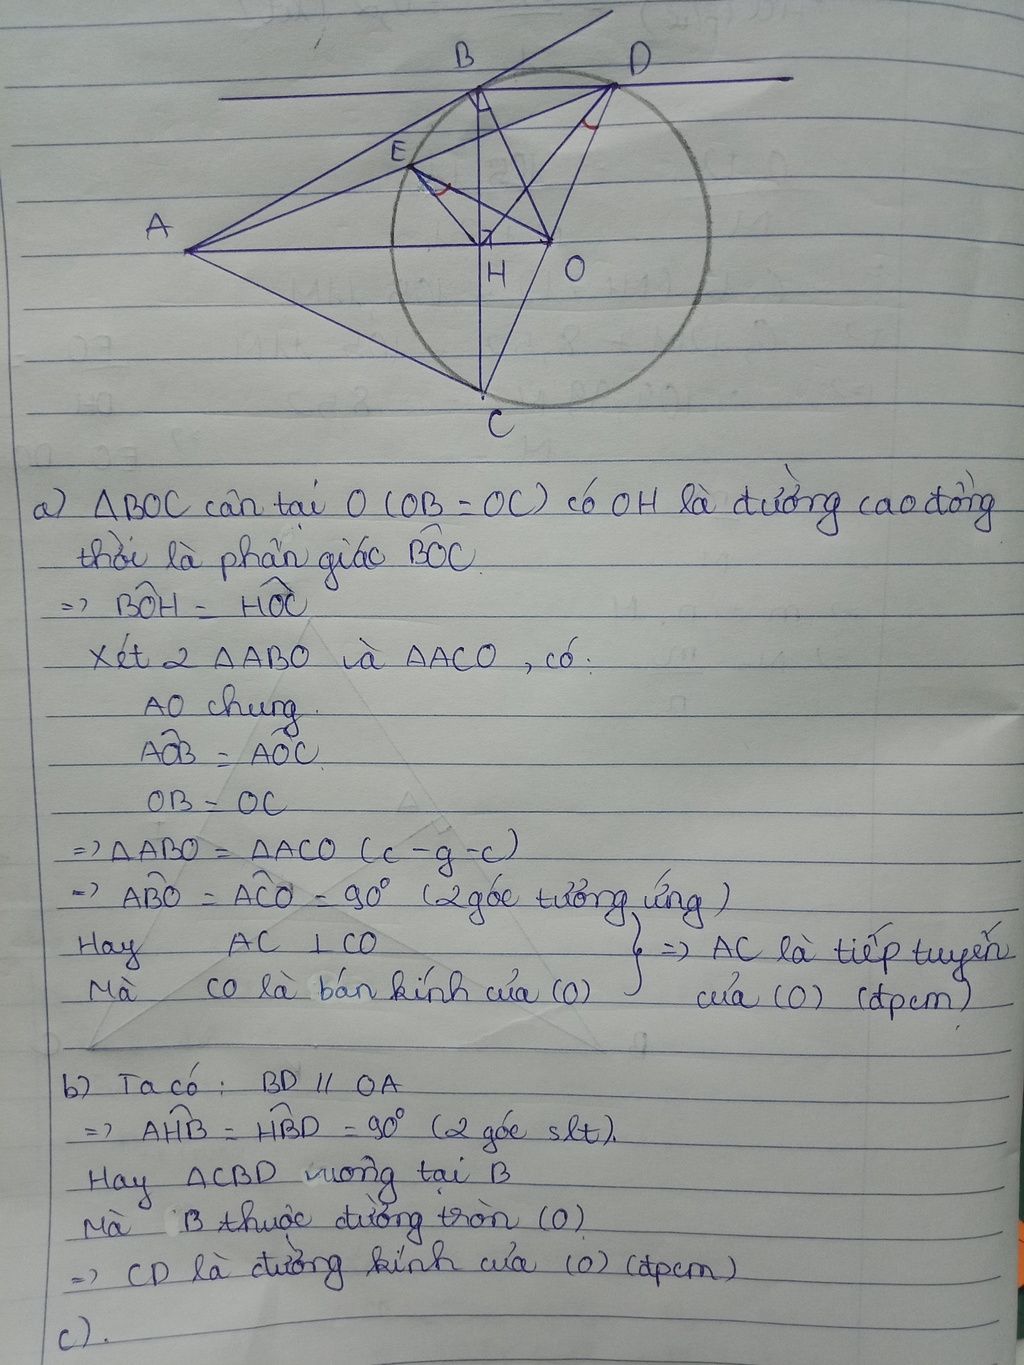 B
D
E
A
H
O
C
a) ΔBOC cân tại O (OB = OC) có OH là đường cao đồng
thời là phân giác BÔC
=> BÔH = HÔC
Xét 2 ΔABO và ΔACO, có:
AO chung.
AÔB = AÔC.
OB = OC
=> ΔABO = ΔACO (c-g-c)
=> AB̂O = AĈO = 90° (2 góc tương ứng)
Hay AC ⊥ CO } => AC là tiếp tuyến
Mà CO là bán kính của (O) của (O) (đpcm)
b) Ta có: BD // OA
=> AĤB = HB̂D = 90° (2 góc slt).
Hay ΔCBD vuông tại B
Mà B thuộc đường tròn (O)
=> CD là đường kính của (O) (đpcm)
c).